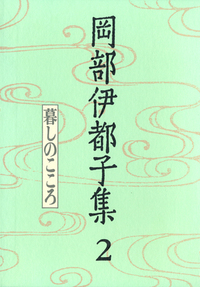 岡部伊都子集
2
暮しのこころ